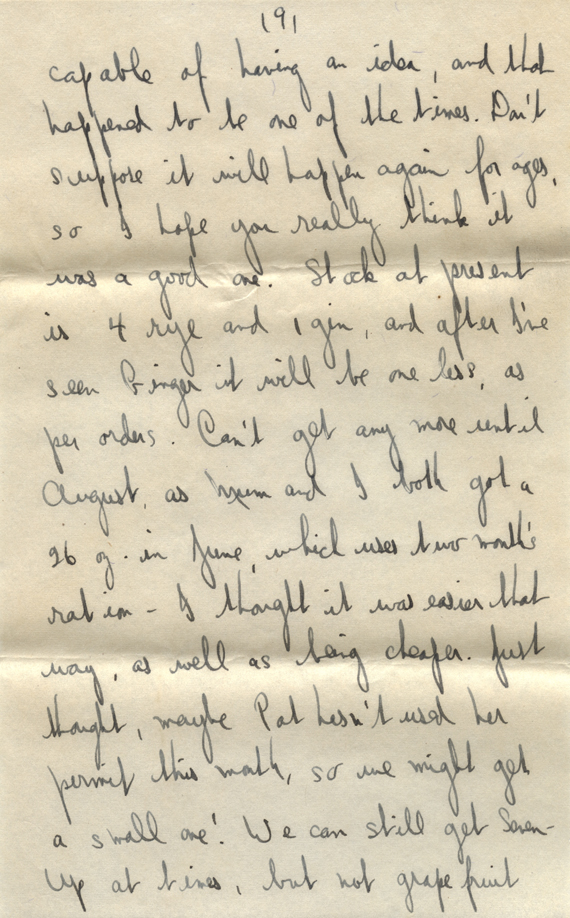 (9)
capable of having an idea, and that
happened to be one of the times. Don't
suppose it will happen again for ages,
so I hope you really think it
was a good one. Stock at present
is 4 rye and 1 gin, and after I've
seen Ginger it will be one less, as
per orders. Can't get any more until
August, as Mum and I both got a
26 oz. in June, which uses two month's
ration - I thought it was easier that
way, as well as being cheaper. Just
thought, maybe Pat hasn't used her
permit this month, so we might get
a small one! We can still get Seven-
Up at times, but not grapefruit